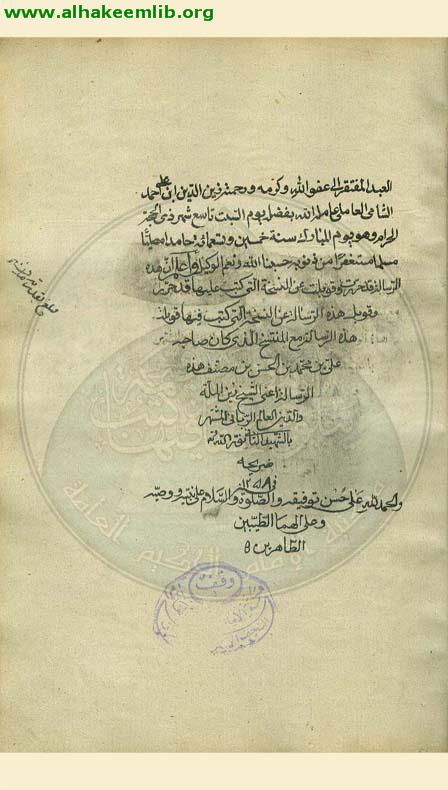 www.alhakeemlib.org
العبد المفتقر الى عفو الله وكرمه ورحمته زين الدين ابن على احمد
الشامى العاملى عامله الله بفضله يوم السبت تاسع شهر ذى الحجة
الحرام وهو يوم المبارك سنة خمسين وتسعمائة حامدا مصليًا
مسلما مستغفرًا من ذنوبه حسبنا الله ونعم الوكيل واعلم ان هذه
الرسالة قد حررت وقوبلت عن النسخة التى كتب عليها قد حررت
وقوبل هذه الرسالة عن النسخة التى كتب فيها قوبلت
هذه الرسالة مع النسخة الذى كان صاحبه
على بن محمد بن الحسن بن مصنف هذه
الرسالة اعنى الشيخ زين الملة
والدين العالم الربانى المشتهر
بالشهيد الثانى نور الله
ضريحه
والحمد لله على حسن توفيقه والصلوة والسلام على نبيه ووصيه
وعلى الهما الطيبين
الطاهرين
وقف